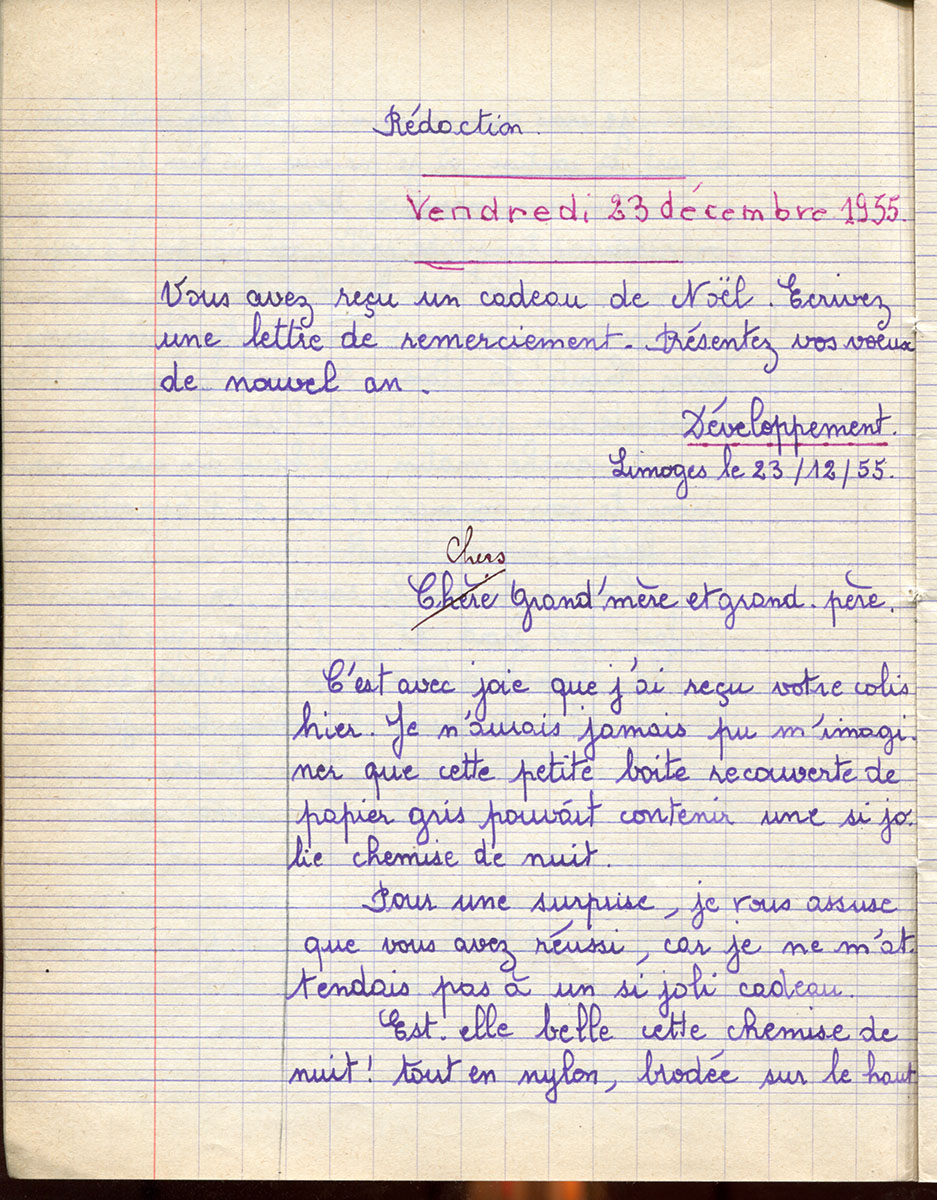 Rédaction.
Vendredi 23 décembre 1955.
Vous avez reçu un cadeau de Noël. Ecrivez
une lettre de remerciement. Présentez vos voeux
de nouvel an.
Développement.
Limoges le 23/12/55.
Chers
Chère Grand'mère et grand-père.
C'est avec joie que j'ai reçu votre colis
hier. Je n'aurais jamais pu m'imagi-
ner que cette petite boite recouverte de
papier gris pouvait contenir une si jo-
lie chemise de nuit.
Pour une surprise, je vous assuse
que vous avez réussi, car je ne m'at-
tendais pas à un si joli cadeau.
Est-elle belle cette chemise de
nuit! tout en nylon, brodée sur le haut